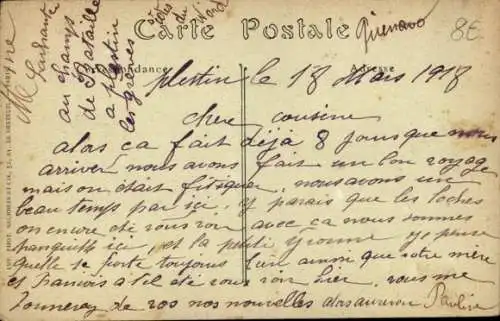 Carte Postale
Correspondance
Adresse
8E
au champs
de Bataille
a plestin
les grèves
plestin le 18 Mars 1918
chere cousine
alors ça fait déjà 8 jours que nous
arriver nous avons fait un bon voyage
mais on était fatiguer, nous avons un
beau temps par ici, y parais que les boches
on encore été vous voir avec ça nous sommes
tranquille ici, et la petite Yvonne je pense
quelle se porte toujours bien ainsi que votre mère
et Francois a t'il été vous voir hier, vous me
donnerez de vos nouvelles alors au revoir Pauline